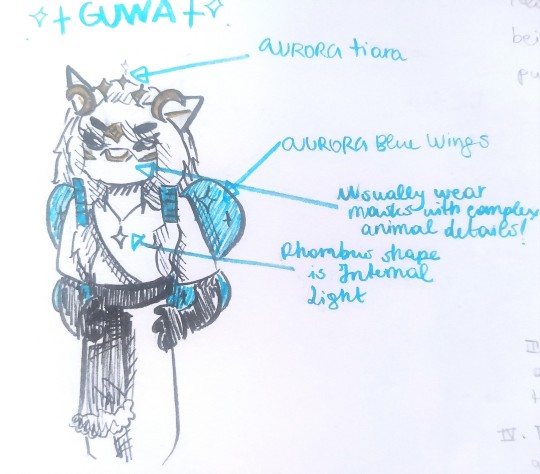 GUWA
AURORA tiara
AURORA Blue Wings
Usually wear
masks with complex
animal details!
Rhombus shape
is Internal
Light